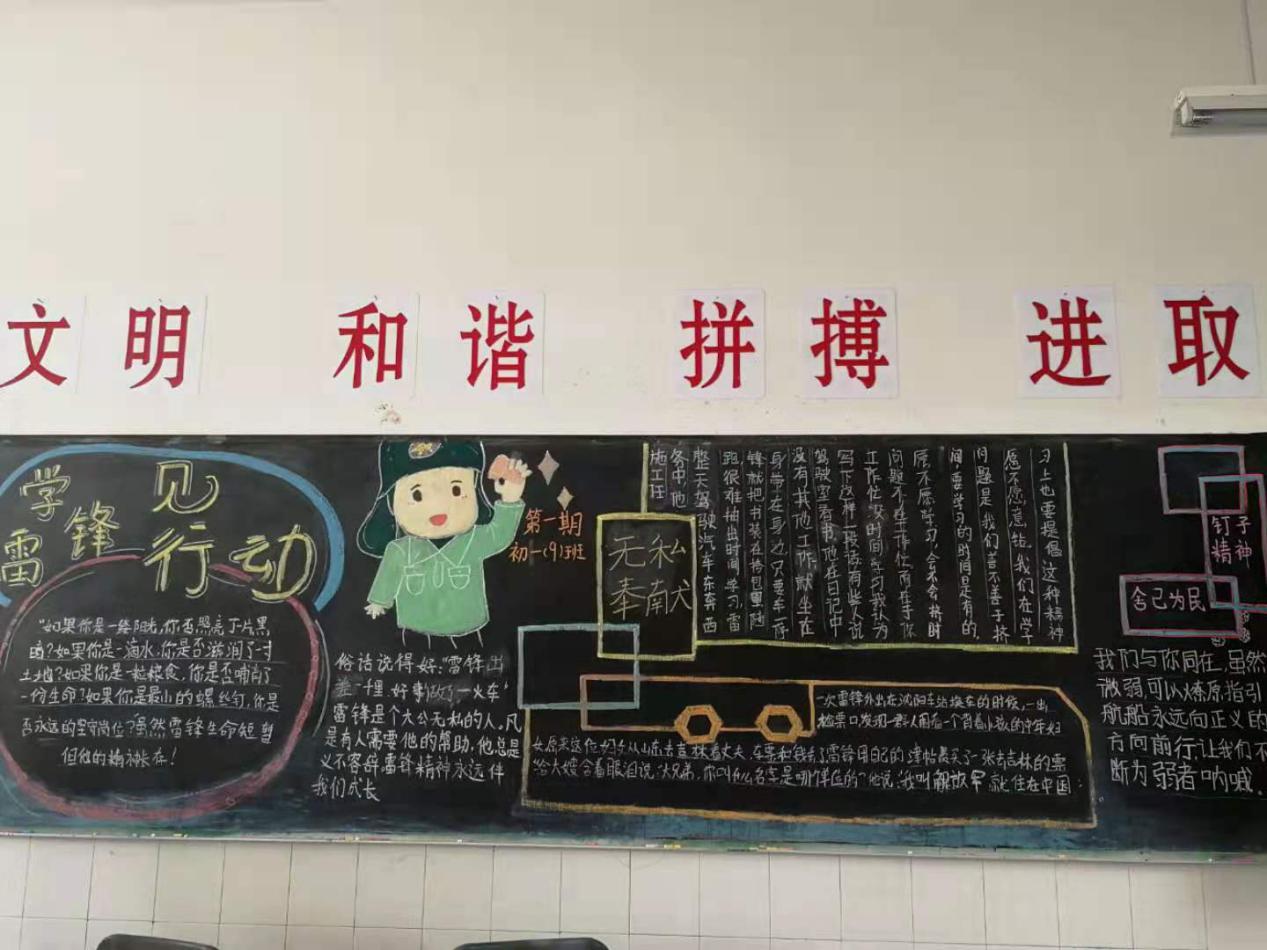 文明 和谐 拼搏 进取
学雷锋 见行动
"如果你是一缕阳光,你是否照亮了一片黑
暗?如果你是一滴水,你是否滋润了一寸
土地?如果你是一粒粮食,你是否哺育了
一份生命?如果你是最小的螺丝钉,你是
否永远的坚守岗位"虽然雷锋生命短暂
但他的精神长存!
第一期
初一(9)班
俗话说得好:"雷锋出
差一千里,好事做了一火车"
雷锋是个大公无私的人,凡
是有人需要他的帮助,他总是
义不容辞雷锋精神永远伴
我们成长
无私
奉献
施工任
务中,他
整天驾驶汽车东奔西
跑,很难抽出时间学习,雷
锋就把书装在挎包里,随
身带在身边,只要车一停
没有其他工作,就坐在
驾驶室看书,他在日记中
写下这样一段话有些人说
工作忙没时间学习我认为
问题不在工作忙,而在于你
愿不愿学习,会不会挤时
间,要学习的时间是有的,
问题是我们善不善于挤
愿不愿意钻,我们在学
习上也要提倡这种精神
一次雷锋外出在沈阳车站换车的时候,一出
检票口发现一群人围在一个背着小孩的中年妇
女,原来这位妇女从山东去吉林看丈夫,车票和钱丢了雷锋用自己的津帖买了一张去吉林的票
给大嫂含着眼泪说:"大兄弟,你叫什么名字是哪个单位的"他说:"我叫解放军 就住在中国
钉子
精神
舍己为民
我们与你同在,虽然
微弱,可以燎原,指引
航船永远向正义的
方向前行,让我们不
断为弱者呐喊.